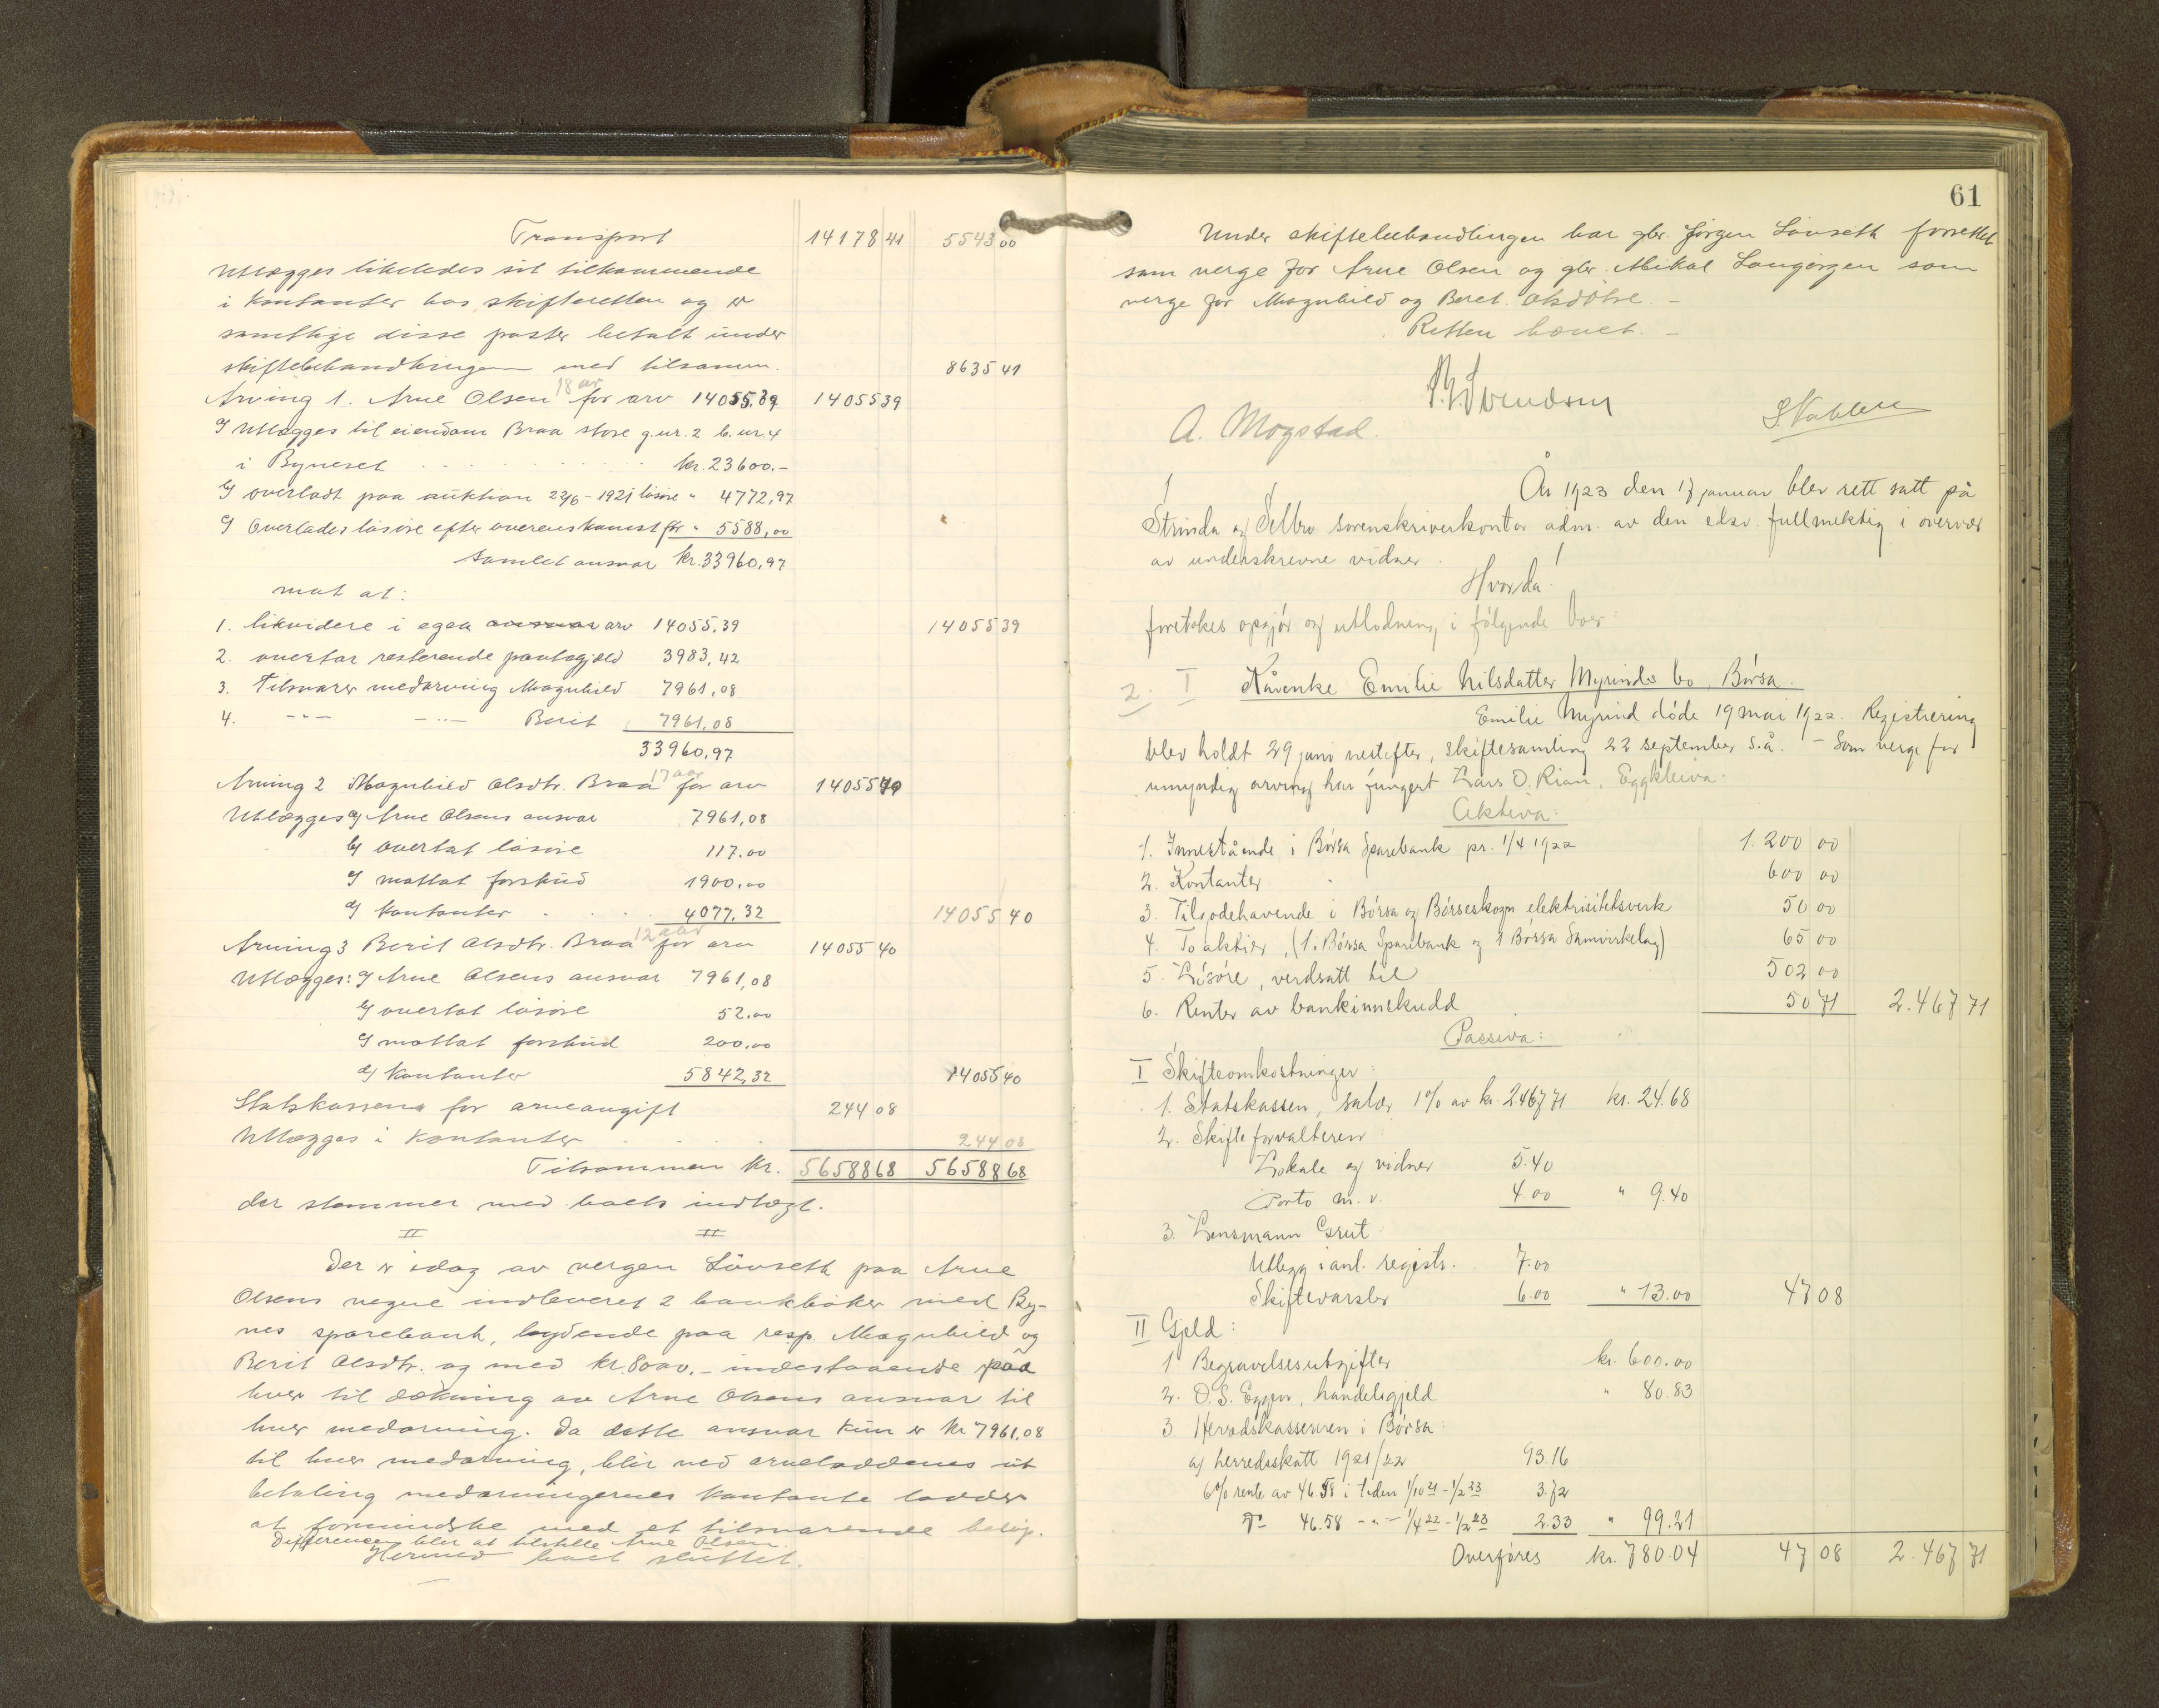 Transport 14178 41 5543 00
Utlægges likeledes sit tilkommende
i kontanter hos skifteretten og er
samtlige disse poster betalt under
skiftebehandlingen med tilsamm. 8635 41
Arving 1. Arne Olsen 18 aar for arv 14055.39 14055 39
a) Utlægges til eiendom Braa store g.nr. 2 b.nr. 4
i Byneset . . . . kr. 23600.-
b) overladt paa auktion 22/6-1921 løsøre " 4772,97
c) Overlades løsøre efter overenskomst for " 5588,00
Samlet ansvar kr. 33960,97
mot at:
1. likvidere i egen ansvar arv 14055.39 14055 39
2. overtar resterende pantegjæld 3983,42
3. Tilsvarer medarving Magnhild 7961,08
4. -"- -"- Berit 7961,08
33960,97
Arving 2 Magnhild Olsdtr. Braa 17 aar for arv 14055 40
Utlægges a) Arne Olsens ansvar 7961,08
b) overtat løsøre 117.00
c) mottat forskud 1900,00
d) kontanter . . . 4077,32 14055 40
Arving 3 Berit Olsdtr. Braa 12 aar for arv 14055 40
Utlægges: a) Arne Olsens ansvar 7961,08
b) overtat løsøre 52.00
c) mottat forskud 200,00
d) kontanter 5842,32 14055 40
Statskassen for arveavgift 244 08
Utlægges i kontanter . . . 244 08
Tilsammen kr. 56588 68 56588 68
der stemmer med boets indtægt.
II II
Der er idag av vergen Lõvseth paa Arne
Olsens vegne indleveret 2 bankbøker med By-
nes sparebank, lydende paa resp. Magnhild og
Berit Olsdtr. og med kr. 8000.- indestaaende paa
hver til dækning av Arne Olsens ansvar til
hver medarving. Da dette ansvar kun er kr 7961,08
til hver medarving, blir ved arveloddenes ut
betaling medarvingernes kontante lodder
at formindske med et tilsvarende beløp.
Differencen blir at tilstille Arne Olsen.
Hermed boet sluttet.
61
Under skiftebehandlingen har gbr. Jørgen Lõvseth forrettet
som verge for Arne Olsen og gbr. Mikal Langørgen som
verge for Magnhild og Beret Olsdøtre. -
Retten hævet. -
A. Mogstad.
År 1923 den 17 januar blev rett satt på
Strinda og Selbu sorenskriverkontor adm. av den edsv. fullmektig i overvær
av underskrevne vidner.
Hvorda!
foretokes opgjör og utlodning i følgende boer:
2. I Kårenke Emilie Nilsdatter Myrinds bo, Börsa.
Emilie Myrind döde 19 mai 1922. Registrering
blev holdt 29 juni nestefter, skiftesamling 22 september s.å. - Som verge for
umyndig arving har fungert Lars O. Rian, Eggkleiva.
Aktiva:
1. Innestående i Börsa Sparebank pr. 1/4 1922 1.200 00
2. Kontanter 600 00
3. Tilgodehavende i Börsa og Börseskogn elektrisitetsverk 50 00
4. To aktier, (1 i Börsa Sparebank og 1 Börsa Samvirkelag) 65 00
5. Lösöre, verdsatt til 502 00
6. Renter av bankinnskudd 50 71 2.467 71
Passiva:
I Skifteomkostninger:
1. Statskassen, salær 1% av kr. 2467 71 kr. 24.68
2. Skifteforvalteren:
Lokale og vidner 5.40
Porto m. v. 4.00 " 9.40
3. Lensmann Grut:
Utlegg i anl. registr. 7.00
Skiftevarsler 6.00 " 13.00 47 08
II Gjeld:
1 Begravelsesutgifter kr. 600.00
2. O. S. Eggen, handelsgjeld " 80.83
3 Herredskassereren i Börsa:
a) herredsskatt 1921/22 93.16
6% rente av 46.58 i tiden 1/10 21 - 1/2 23 3.72
do 46.58 -"- 1/4 22 - 1/2 23 2.33 " 99.21
Overføres kr. 780.04 47 08 2.467 71